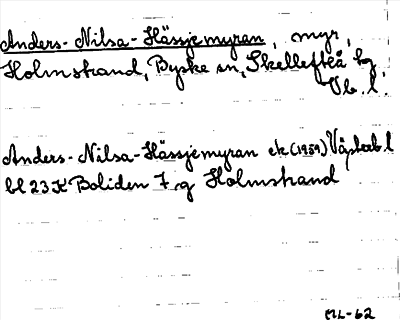 Anders-Nilsa-Hässjemyran, myr,
Holmstrand, Byske sn, Skellefteå tg
Vb. l.
Anders-Nilsa-Hässjemyran ek (1959) Västerb l
bl 23 K Boliden 7 g Holmstrand
ML-62